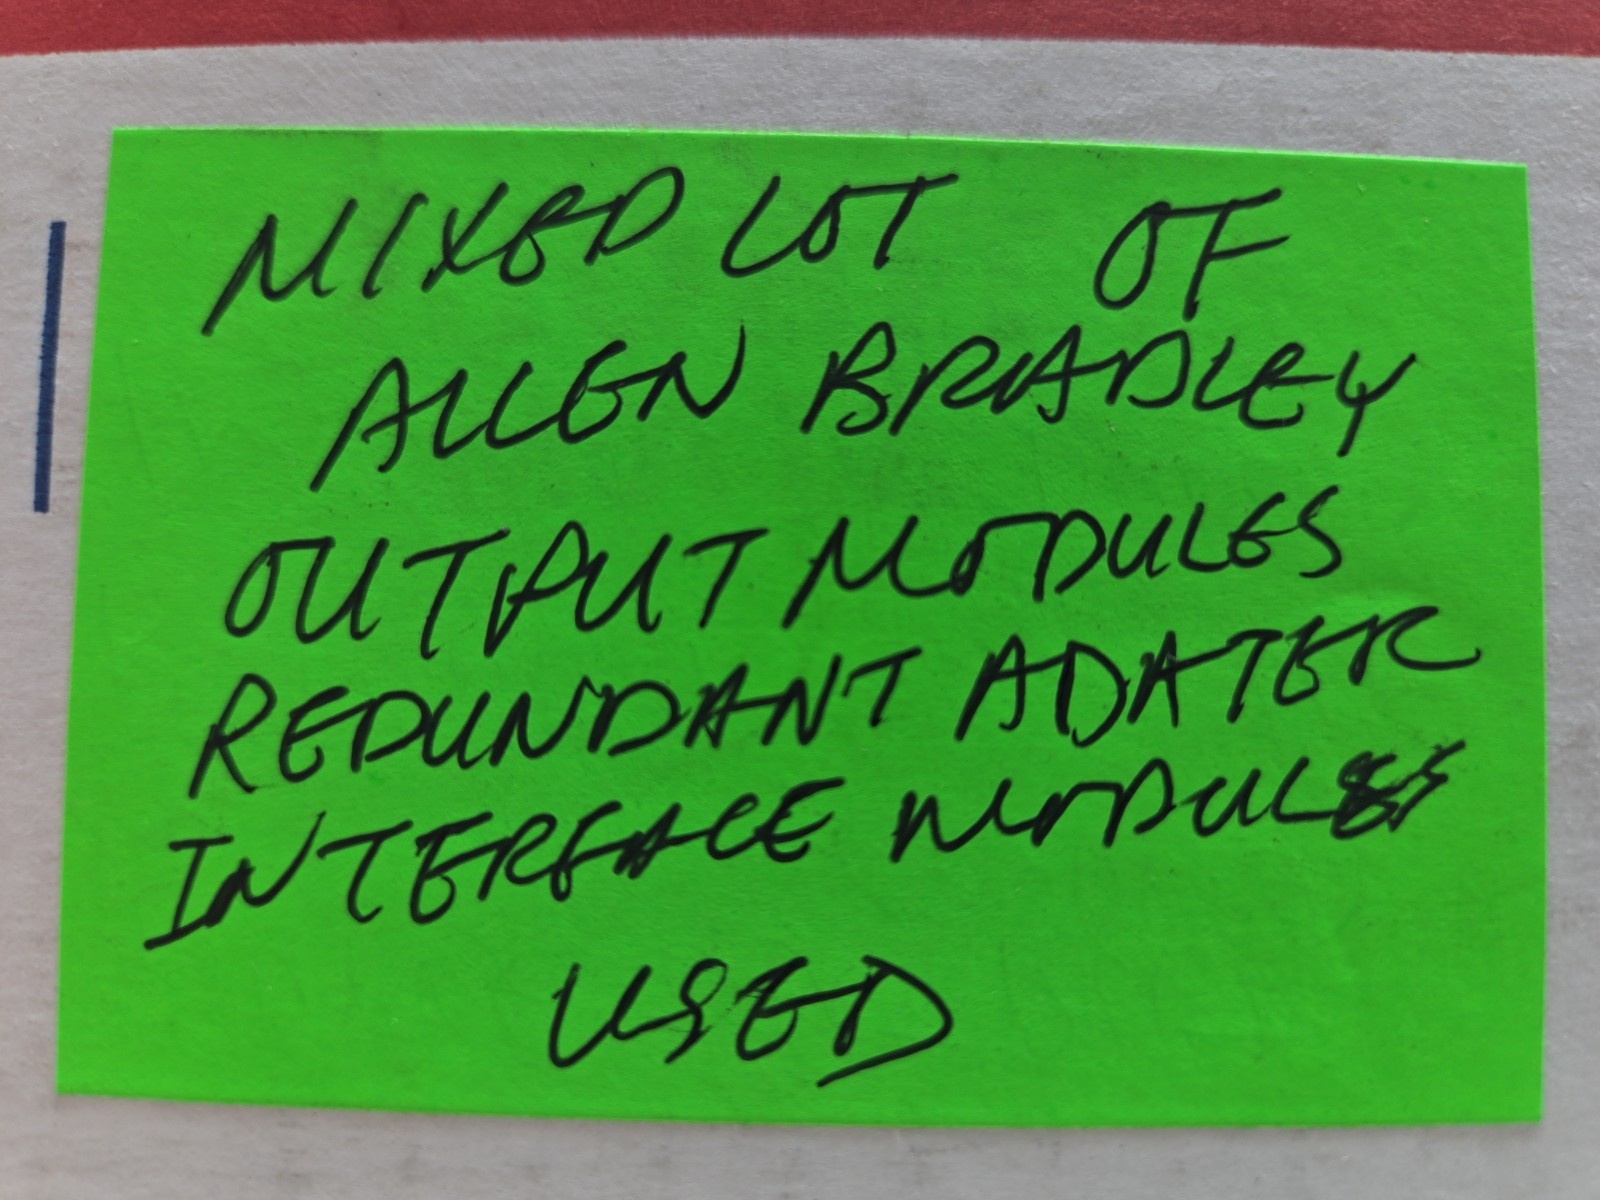 MIXED LOT OF
ALLEN BRADLEY
OUTPUT MODULES
REDUNDANT ADATER
INTERFACE MODULES
USED